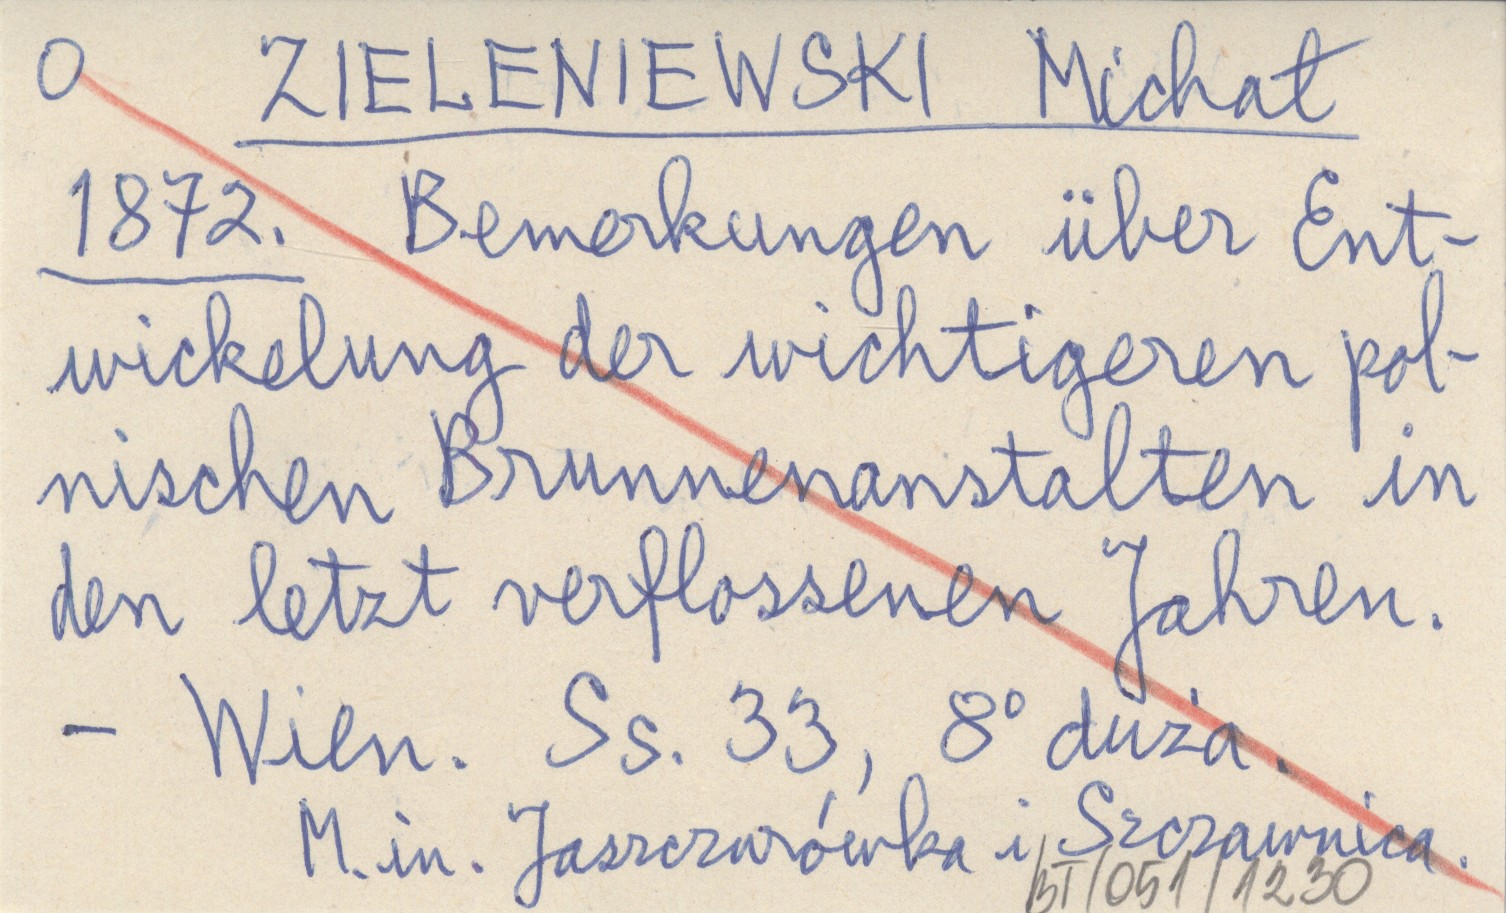 O ZIELENIEWSKI Michał
1872. Bemerkungen über Ent-
wickelung der wichtigeren pol-
nischen Brunnenanstalten in
den letzt verflossenen Jahren.
- Wien. Ss. 33, 8° duża.
M. in. Jaszczurówka i Szczawnica.
BT/051/1230